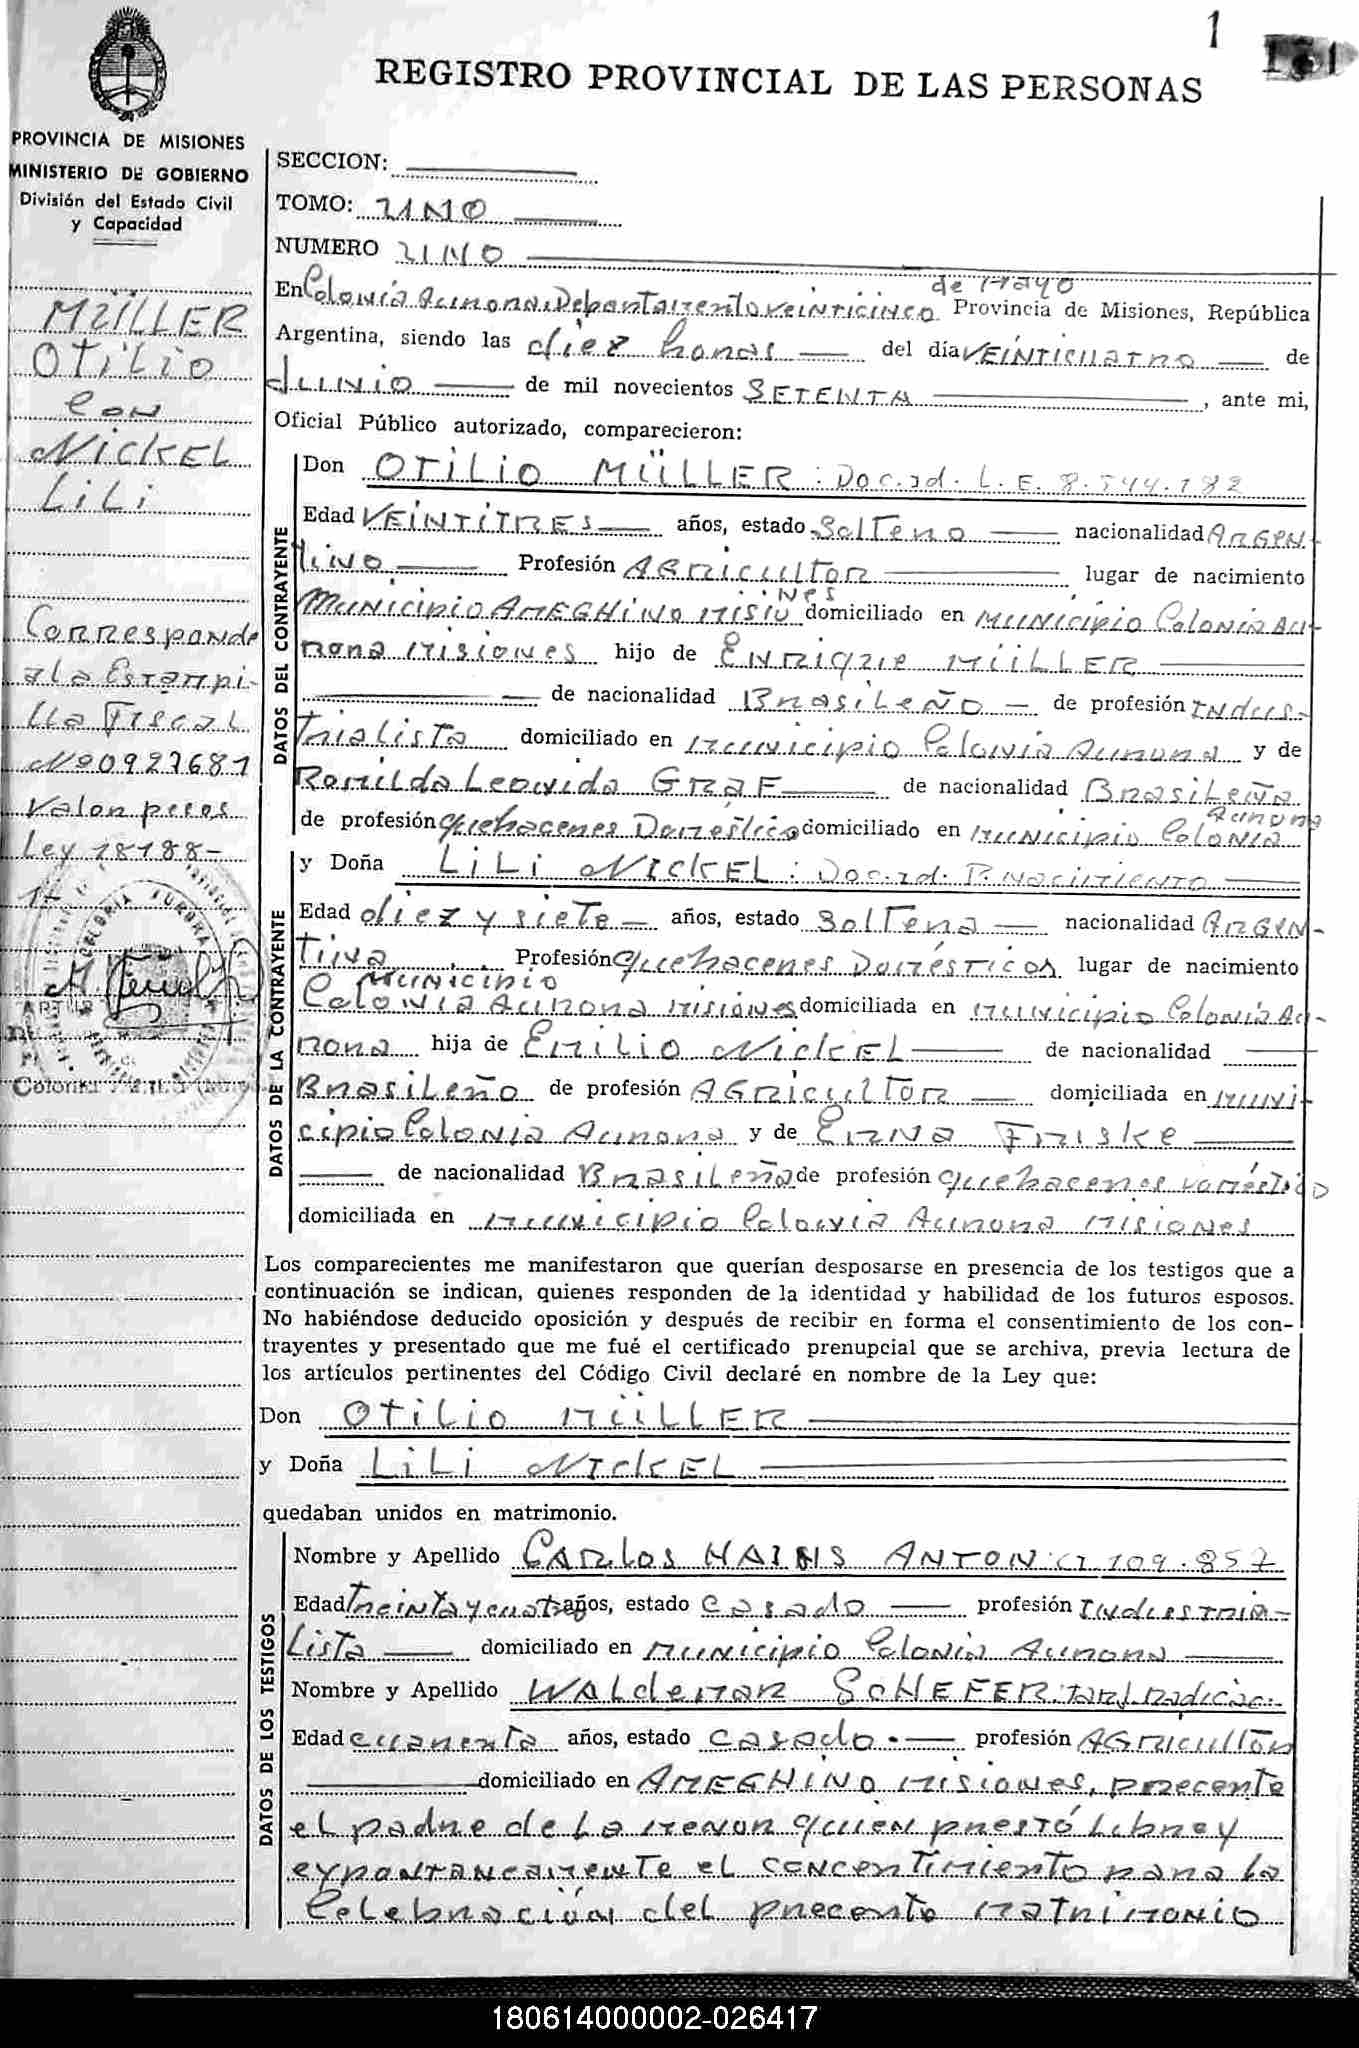 1
REGISTRO PROVINCIAL DE LAS PERSONAS
PROVINCIA DE MISIONES
MINISTERIO DE GOBIERNO
División del Estado Civil
y Capacidad
SECCION:
TOMO: UNO
NUMERO UNO
MÜLLER
OTILIO
CON
NICKEL
LILI
Corresponde
a la Estampi-
lla Fiscal
Nº 0927681
Valor pesos
Ley 18188-
1-
COLONIA AURORA
de Mayo
En Colonia Aurora Departamento Veinticinco Provincia de Misiones, República
Argentina, siendo las diez horas del día VEINTICUATRO de
Junio de mil novecientos SETENTA, ante mi,
Oficial Público autorizado, comparecieron:
DATOS DEL CONTRAYENTE
Don OTILIO MÜLLER: Doc. id. L. E. 8.544.182
Edad VEINTITRES años, estado Soltero nacionalidad ARGEN-
tino Profesión AGRICULTOR lugar de nacimiento
MUNICIPIO AMEGHINO MISIONES domiciliado en MUNICIPIO Colonia Au-
rora Misiones hijo de ENRIQUE MÜLLER
de nacionalidad BRASILEÑO de profesión INDUS-
trialista domiciliado en Municipio Colonia Aurora y de
Romilda Leonida GRAF de nacionalidad BRASILEÑA
de profesión quehaceres Domestico domiciliado en Municipio Colonia Aurora
DATOS DE LA CONTRAYENTE
y Doña LILI NICKEL: Doc. id. P. NACIMIENTO
Edad diez y siete años, estado Soltera nacionalidad ARGEN-
TINA Profesión quehaceres DOMÉSTICOS lugar de nacimiento
MUNICIPIO
Colonia Aurora Misiones domiciliada en Municipio Colonia Au-
rora hija de Emilio NICKEL de nacionalidad
BRASILEÑO de profesión AGRICULTOR domiciliada en Muni-
cipio Colonia Aurora y de ERNA FRISKE
de nacionalidad BRASILEÑA de profesión quehaceres doméstico
domiciliada en Municipio Colonia Aurora Misiones
Los comparecientes me manifestaron que querían desposarse en presencia de los testigos que a
continuación se indican, quienes responden de la identidad y habilidad de los futuros esposos.
No habiéndose deducido oposición y después de recibir en forma el consentimiento de los con-
trayentes y presentado que me fué el certificado prenupcial que se archiva, previa lectura de
los artículos pertinentes del Código Civil declaré en nombre de la Ley que:
Don OTILIO MÜLLER
y Doña LILI NICKEL
quedaban unidos en matrimonio.
DATOS DE LOS TESTIGOS
Nombre y Apellido CARLOS HAINS ANTON: CI 109.857
Edad Treinta y cuatro años, estado Casado profesión INDUSTRIA-
LISTA domiciliado en Municipio Colonia Aurora
Nombre y Apellido WALDEMAR SCHEFER: Tarj. radicac.
Edad cuarenta años, estado Casado profesión AGRICULTOR
domiciliado en AMEGHINO Misiones, precente
el padre de la menor quien prestó Libre y
expontaneamente el concentimiento para la
Celebración del precente Matrimonio
180614000002-026417